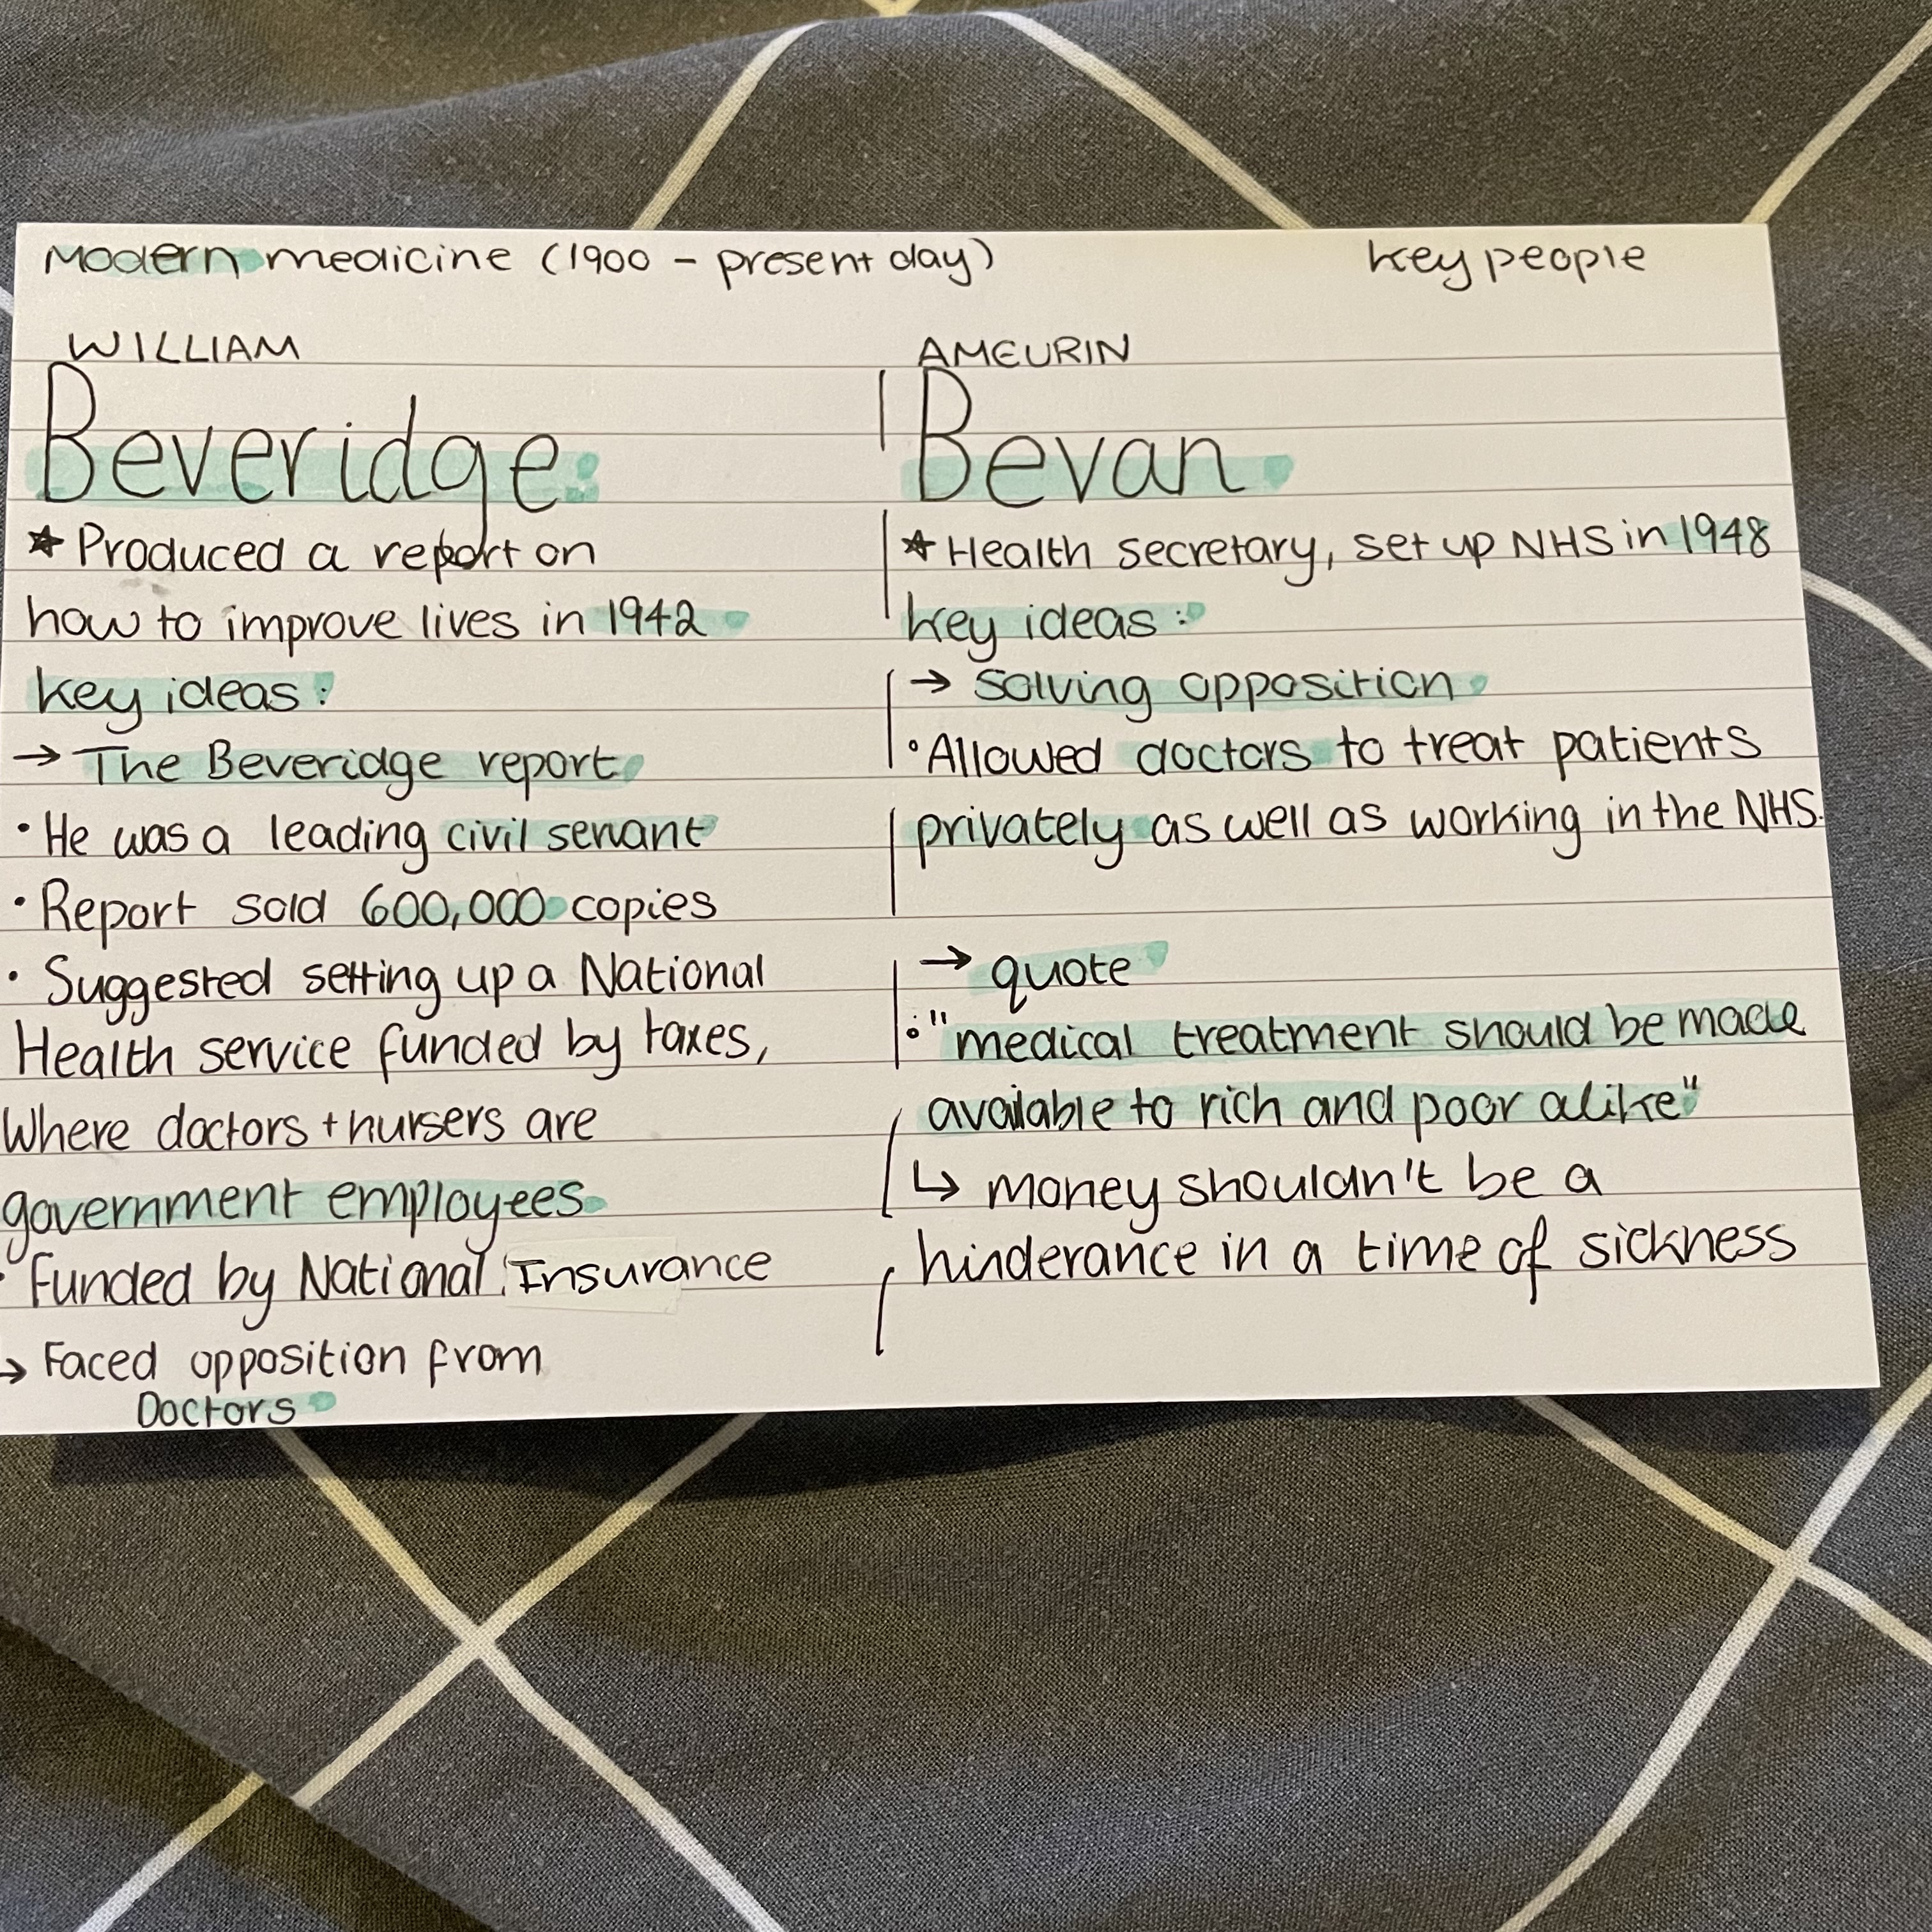 Modern medicine (1900 - present day)
key people
WILLIAM
Beveridge:
★ Produced a report on
how to improve lives in 1942
key ideas:
→ The Beveridge report
• He was a leading civil servant
• Report sold 600,000 copies
• Suggested setting up a National
Health service funded by taxes,
Where doctors + nursers are
government employees
• Funded by National Insurance
→ Faced opposition from
Doctors
AMEURIN
Bevan
★ Health secretary, set up NHS in 1948
key ideas:
→ Solving opposition
• Allowed doctors to treat patients
privately as well as working in the NHS.
→ quote
• "medical treatment should be made
available to rich and poor alike"
↳ money shouldn't be a
hinderance in a time of sickness